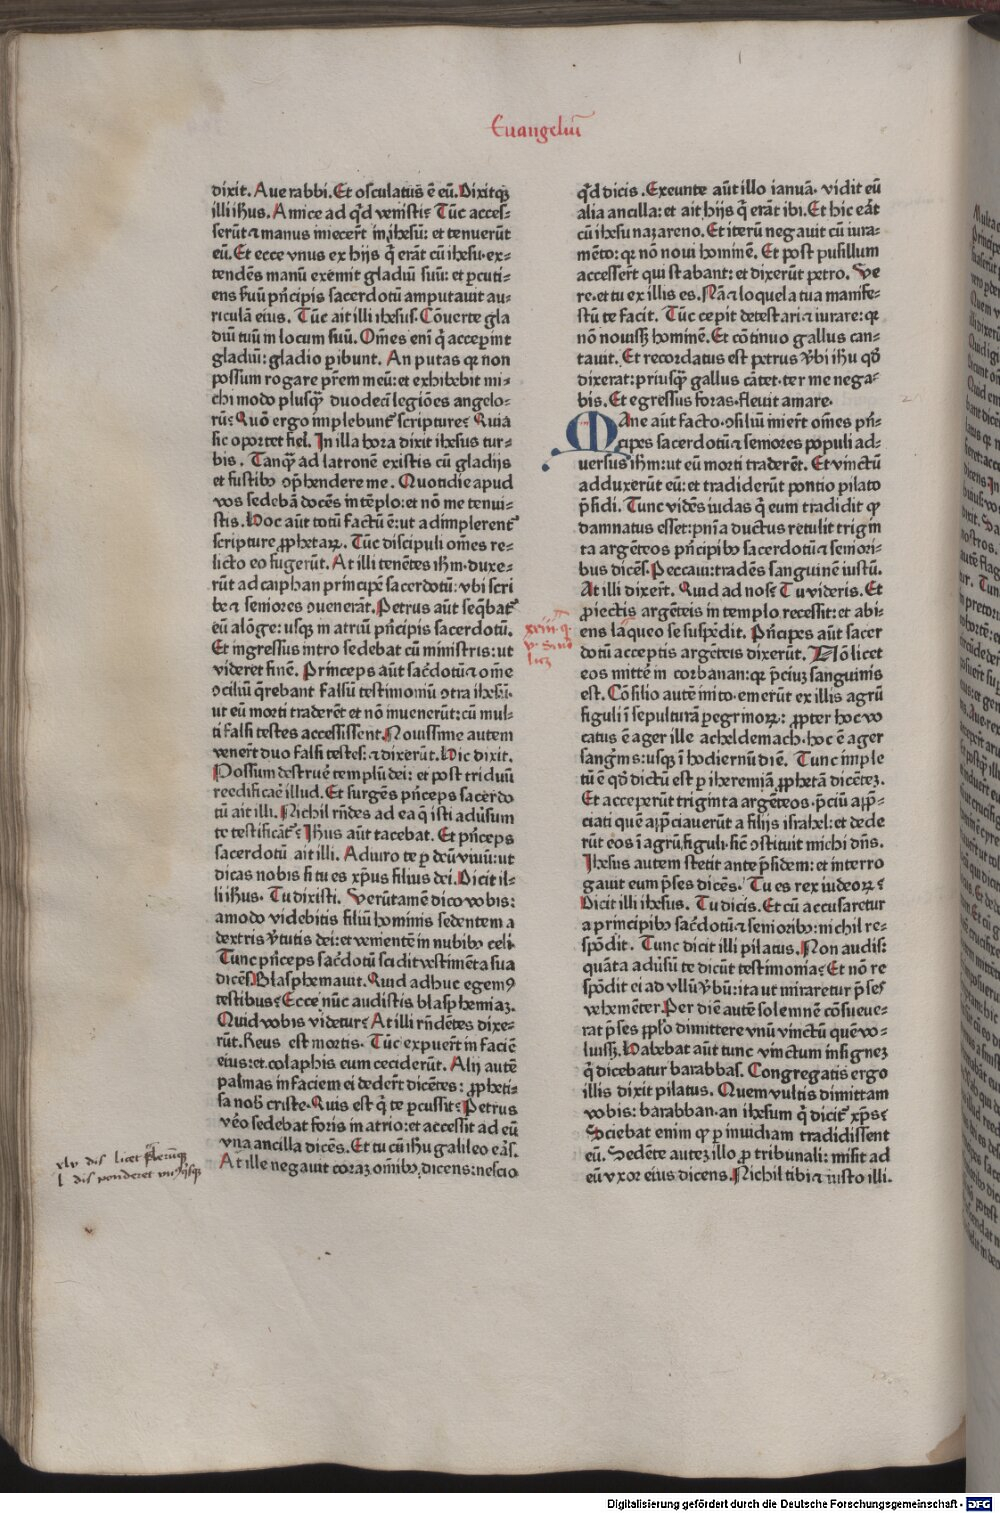 Euangeliū
dixit. Aue rabbi. Et osculatus ē eū. Dixitqꝫ
illi ih̄us. Amice ad qd̓ venisti? Tūc acces⸗
serūt ⁊ manus iniecer̄t in ihesū: et tenuerūt
eū. Et ecce vnus ex hijs q̓ erāt cū ihesu·ex⸗
tendēs manū exemit gladiū suū: et ꝑcuti⸗
ens ẜuū pn̄cipis sacerdotū amputauit au⸗
riculā eius. Tūc ait illi ihesus. Cōuerte gla
diū tuū in locum suū. Om̄es eni̅ q̓ acceperint
gladiū: gladio ꝑibunt. An putas qꝛ non
possum rogare pr̄em meū: et exhibebit mi⸗
chi modo plusqꝫ̄ duodeci̅ legiōes angelo⸗
rū? Quō ergo implebunt᷑ scripture? Quia
sic oportet fieri̅. In illa hora dixit ihesus tur⸗
bis. Tanqꝫ̄ ad latronē existis cū gladijs
et fustibꝰ ꝯp̄hendere me. Quotidie apud
vos sedebā docēs in tēplo: et nō me tenui⸗
stis. Hoc aūt totū factū ē: ut adimplerent᷑
scripture ꝓphetaꝝ. Tūc discipuli om̄es re⸗
licto eo fugerūt. At illi tenētes ih̄m·duxe⸗
rūt ad caiphan principē sacerdotū: vbi scri
be ⁊ seniores ꝯuenerāt. Petrus aūt seq̄bat᷑
eū alōge: usqꝫ in atriū pn̄cipis sacerdotū.
Et ingressus intro sedebat cū ministris: ut
videret finē. Princeps aūt sac̄dotū ⁊ om̄e
ꝯciliū q̄rebant falsū testimoniū ꝯtra ihesū·
ut eū morti traderēt et nō inuenerūt: cū mul⸗
ti falsi testes accessissent. Nouissime autem
vener̄t duo falsi testes: ⁊ dixerūt. Hic dixit.
Possum destruer̄ templū dei: et post triduū
reedificar̄e illud. Et surgēs pn̄ceps sacerdo
tū ait illi. Nichil rn̄des ad ea q̓ isti adūsum
te testificāt᷑? Ih̄us aūt tacebat. Et pn̄ceps
sacerdotū ait illi. Adiuro te ꝑ deū viuū: ut
dicas nobis si tu es xp̄us filius dei. Dicit il⸗
li ih̄us. Tu dixisti. Verūtamē dico vobis:
amodo videbitis filiū hominis sedentem a
dextris v̓tutis dei: et venientē in nubibꝰ celi.
Tunc pn̄ceps sac̄dotū scidit vestimēta sua
dicēs. Blasphemauit. Quid adhuc egemꝰ
testibus? Ecce nūc audistis blasphemiaꝫ.
Quid vobis videtur? At illi rn̄dētes dixe⸗
rūt. Reus est mortis. Tūc expuer̄t in faciē
eius: et colaphis eum ceciderūt. Alij autē
palmas in faciem ei deder̄t dicētes: ꝓpheti⸗
sa nob̓ criste. Quis est q̓ te ꝑcussit? Petrus
v̓o sedebat foris in atrio: et accessit ad eū
vna ancilla dicēs. Et tu cū ih̄u galileo eras̄.
At ille negauit coraꝫ om̄ibꝰ, dicens: nescio
qd̓ dicis. Exeunte aūt illo ianuā· vidit eū
alia ancilla: et ait hijs q̓ erāt ibi. Et hic erāt
cū ihesu nazareno. Et iterū negauit cū iura⸗
mēto: qꝛ nō noui hominē. Et post pusillum
accesser̄t qui stabant: et dixerūt petro. Ve
re·et tu ex illis es. Nā ⁊ loquela tua manife⸗
stū te facit. Tūc cepit detestari ⁊ iurare: qꝛ
nō nouissꝫ hominē. Et cōtinuo gallus can⸗
tauit. Et recordatus est petrus v̓bi ih̄u qd̓
dixerat: priusqꝫ̄ gallus cātet·ter me nega⸗
bis. Et egressus foras·fleuit amare.
MAne aūt facto·ꝯsiliū inier̄t om̄es pn̄⸗
cipes sacerdotū ⁊ seniores populi ad⸗
uersus ih̄m: ut eū morti traderēt. Et vinctū
adduxerūt eū: et tradiderūt pontio pilato
p̄sidi. Tunc vidēs iudas q̓ eum tradidit ꝙ
damnatus esset: pn̄ia ductus retulit trigin
ta argēteos pn̄cipibꝰ sacerdotū ⁊ seniori⸗
bus dicēs. Peccaui: tradēs sanguinē iustū.
At illi dixer̄t. Quid ad nos? Tu videris. Et
ꝓiectis argēteis in templo recessit: et abi⸗
ens laqueo se suspēdit. Pn̄cipes aūt sacer
dotū acceptis argēteis dixerūt. Nō licet
eos mitter̄ in corbanan: qꝛ p̄ciū sanguinis
est. Cōsilio autē inito·emerūt ex illis agrū
figuli ī sepulturā ꝑegrinoꝝ: ꝓpter hoc vo
catus ē ager ille acheldemach·hoc ē ager
sang̓ms: usqꝫ ī hodiernū diē. Tunc imple
tū ē qd̓ dictū est ꝑ iheremiā ꝓphetā dicētēꝫ.
Et acceperūt triginta argēteos·p̄ciū app̄⸗
ciati quē app̄ciauerūt a filijs israhel: et dede
rūt eos ī agrū figuli·sic̄ ꝯstituit michi dn̄s.
Ihesus autem stetit ante p̄sidem: et interro
gauit eum p̄ses dicēs. Tu es rex iudeoꝝ?
Dicit illi ihesus. Tu dicis. Et cū accusaretur
a principibꝰ sac̄dotū ⁊ senioribꝰ: nichil re⸗
spōdit. Tunc dicit illi pilatus. Non audis:
quāta adūsū te dicūt testimonia? Et nō re
spōdit ei ad vllū v̓bū: ita ut miraretur p̄ses
vehemēter. Per diē autē solemnē cōsueue⸗
rat p̄ses ꝓplo dimittere vnū vinctū quē vo⸗
luissꝫ. Habebat aūt tunc vinctum insigneꝫ
q̓ dicebatur barabbas. Congregatis ergo
illis dixit pilatus. Quem vultis dimittam
vobis: barabban·an ihesum q̓ dicit᷑ xp̄s?
Sciebat enim ꝙ ꝑ inuidiam tradidissent
eū. Sedēte auteꝫ illo ꝓ tribunali: misit ad
eū vxor eius dicens. Nichil tibi ⁊ iusto illi.
Digitalisierung gefördert durch die Deutsche Forschungsgemeinschaft - DFG